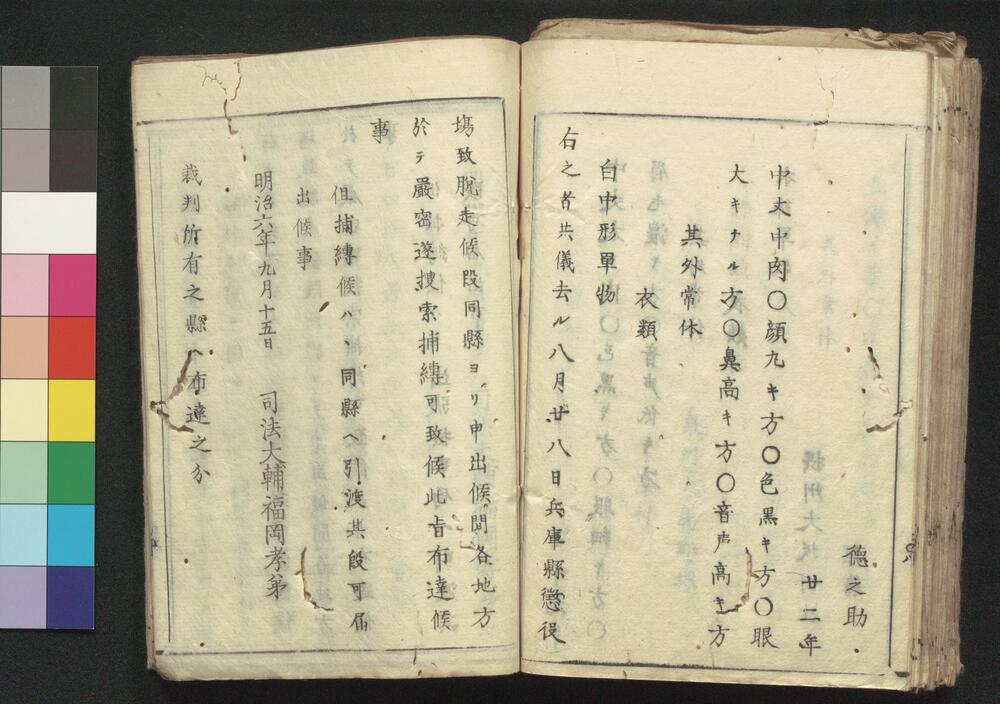 徳之助
廿二年
中丈中肉〇顔丸キ方〇色黒キ方〇眼
大キナル方〇鼻高キ方〇音声高キ方
其外常体
衣類
白中形単物
右之者共儀去ル八月廿八日兵庫縣懲役
場致脱走候段同縣ヨリ申出候間各地方
於テ嚴密遂捜索捕縛可致候此旨布達候
事
但捕縛候ハヽ同縣ヘ引渡其段可届
出候事
明治六年九月十五日 司法大輔福岡孝弟
裁判所有之縣ヘ布達之分